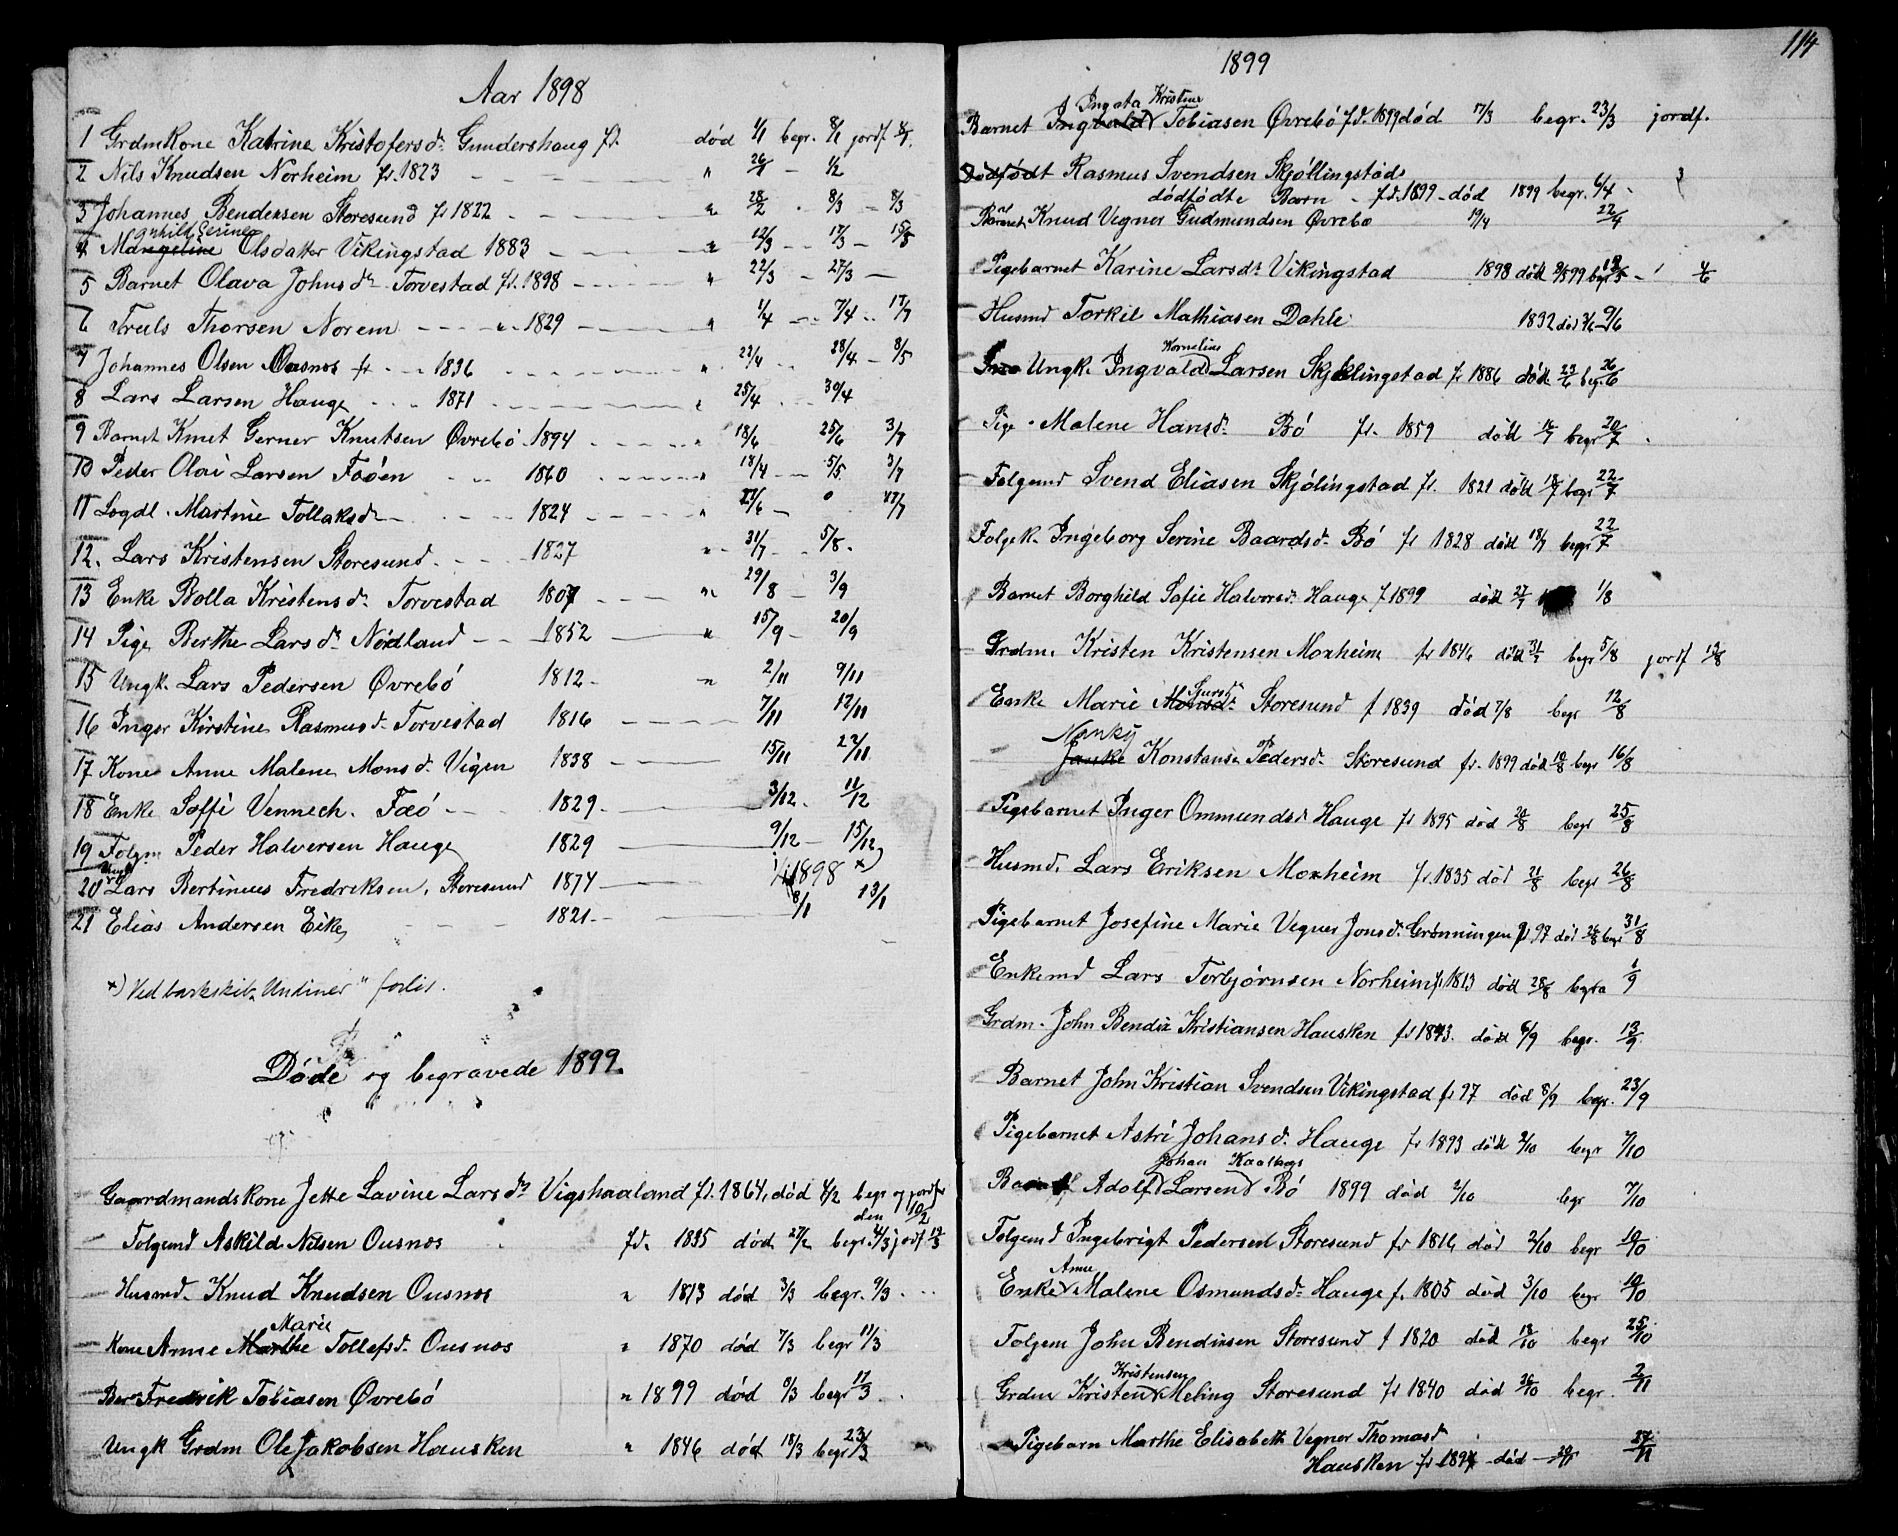 Aar 1898
1 Grdmkone Katrine Kristofersdr. Gundershaug fd. død 1/1 begr. 8/1 jordf
2 Nils Knudsen Norheim fd. 1823 " 26/1 - 1/2
3 Johannes Bendeksen Storesund fd 1822 " 28/2 - 8/3 - 8/3
Serine
4 Olsdatter Vikingstad 1883 - " 12/3 - 17/3 - 15/8
5 Barnet Olava Johnsdr. Torvestad fd. 1898 - " 22/3 - 27/3 -
6 Truls Thorsen Norem - " - 1829 - " 1/4 - 7/4 - 17/7
7 Johannes Olsen Ousnos fd - 1836 " 22/4 - 28/4 - 8/5
8 Lars Larsen Hauge - 1871 - " 25/4 - 30/4
9 Barnet Knut Gerner Knutsen Øvrebø 1894 - " 18/6 25/6 3/7
10 Peder Olai Larsen Faøen - 1860 - " 18/4 - 5/5 3/7
11 Logdl. Martine Tollaksdr - 1824 - " 22/6 - 0 17/7
12. Lars Kristensen Storesund - 1827 " 31/7 - 5/8.
13 Enke Bolla Kristensdr. Torvestad 1807 - " 29/8 - 3/9
14 Pige Berthe Larsdr. Nødland - 1852 - " 15/9 - 20/9
15 Ungk. Lars Pedersen Øvrebø 1812 - " 2/11 9/11
16 Inger Kirstine Rasmusdr. Torvestad 1816 - 7/11 12/11
17 Kone Anne Malene Monsdr. Vigen 1838 - 15/11 22/11
18 Enke Soffi Vennech. Fæø - 1829 - 3/12 - 11/12
19 Folgm Peder Halversen Hauge 1829 - 9/12 - 15/12
Ungk
20 Lars Bertinius Fredriksen, Storesund 1874 - 1/1 1898 x)
21 Elias Andersen Eike - 1821 - 8/1 13/1
x) Ved barkskib "Undines" forlis.
Døde og begravede 1899.
Gaardmandskone Jette Lavine Larsdr Vigshaaland fd. 1864, død 4/2 begr og jordf
den 10/2
Folgemd Askild Nilsen Ousnos fd. 1835 død 27/2 begr. 4/3 jordf 12/3
Husmd. Knud Knudsen Ousnos " 1813 død 3/3 begr. 9/3
Marie
Kone Anne Marthe Tollefsdr. Ousnos " 1870 død 7/3 begr 11/3
Bar Fredrik Tobiasen Øvrebø " 1899 død 9/3 begr 17/3
Ungk Grdm Ole Jakobsen Hausken " 1846 død 18/3 begr 23/3
114
1899
Ingeta Kristine
Barnet Ingvald Tobiasen Øvrebø fd. 1899 død 17/3 begr. 23/3 jordf.
Dødfødt Rasmus Svendsen Skjøllingstads
dødfødte Barn - fd. 1899 - død 1899 begr. 6/4 -
Barnet Knud Vegner Gudmundsen Øvrebø 19/4 22/4
Pigebarnet Karine Larsdr. Vikingstad 1898 død 9/5 99 begr 12/5 - 4/6
Husmd Torkil Mathiasen Dahle 1832 død 3/6 - 9/6
Kornelius
Ungk. Ingvald Larsen Skjøllingstad fd 1886 død 23/6 begr 26/6
Pige - Malene Hansdr. Bø fd. 1859 død 16/7 begr 20/7
Folgemd Svend Eliasen Skjølingstad fd. 1821 død 18/7 begr 22/7
Folgek. Ingeborg Serine Baardsdr. Bø fd 1828 død 18/7 begr 22/7
Barnet Borghild Sofie Halvorsdr. Hauge f 1899 død 27/7 1/8
Grdm. Kristen Kristensen Moxheim fd 1846 død 31/7 begr 5/8 jordf 13/8
Sjursdr
Enke Marie Monsdr. Storesund f 1839 død 7/8 begr 12/8
Nanky
Janke Konstanse Pedersdr. Storesund fd. 1899 død 10/8 begr 16/8
Pigebarnet Inger Ommundsd Hauge fd 1895 død 20/8 begr 25/8
Husmd. Lars Eriksen Moxheim fd. 1835 død 21/8 begr 26/8
Pigebarnet Josefine Marie Vegner Jonsdr. Grønningen fd 97 død 26/8 begr 31/8
Enkemd Lars Torbjørnsen Norheim fd. 1813 død 28/8 begr 1/9
Grdm. John Bendix Kristiansen Hausken fd 1893. død 6/9 begr. 13/9
Barnet John Kristian Svendsen Vikingstad fd 97 død 8/9 begr. 23/9
Pigebarnet Astri Johansdr. Hauge fd 1893 død 2/10 begr 7/10
Johan Kaalbergs
Adolf Larsen Bø 1899 død 2/10 begr 7/10
Folgemd Ingebrigt Pedersen Storesund fd 1816 død 2/10 begr 10/10
Anne
Enke Malene Osmundsdr. Hauge f. 1805 død 3/10 begr 10/10
Folgem John Bendixsen Storesund f 1820 død 18/10 begr 25/10
Kristensen
Grdm Kristen Meling Storesund fd 1840 død 26/10 begr. 2/11
Pigebarn Marthe Elisabeth Vegner Thomasd
Hausken fd 1894 - død - 20/11 27/11